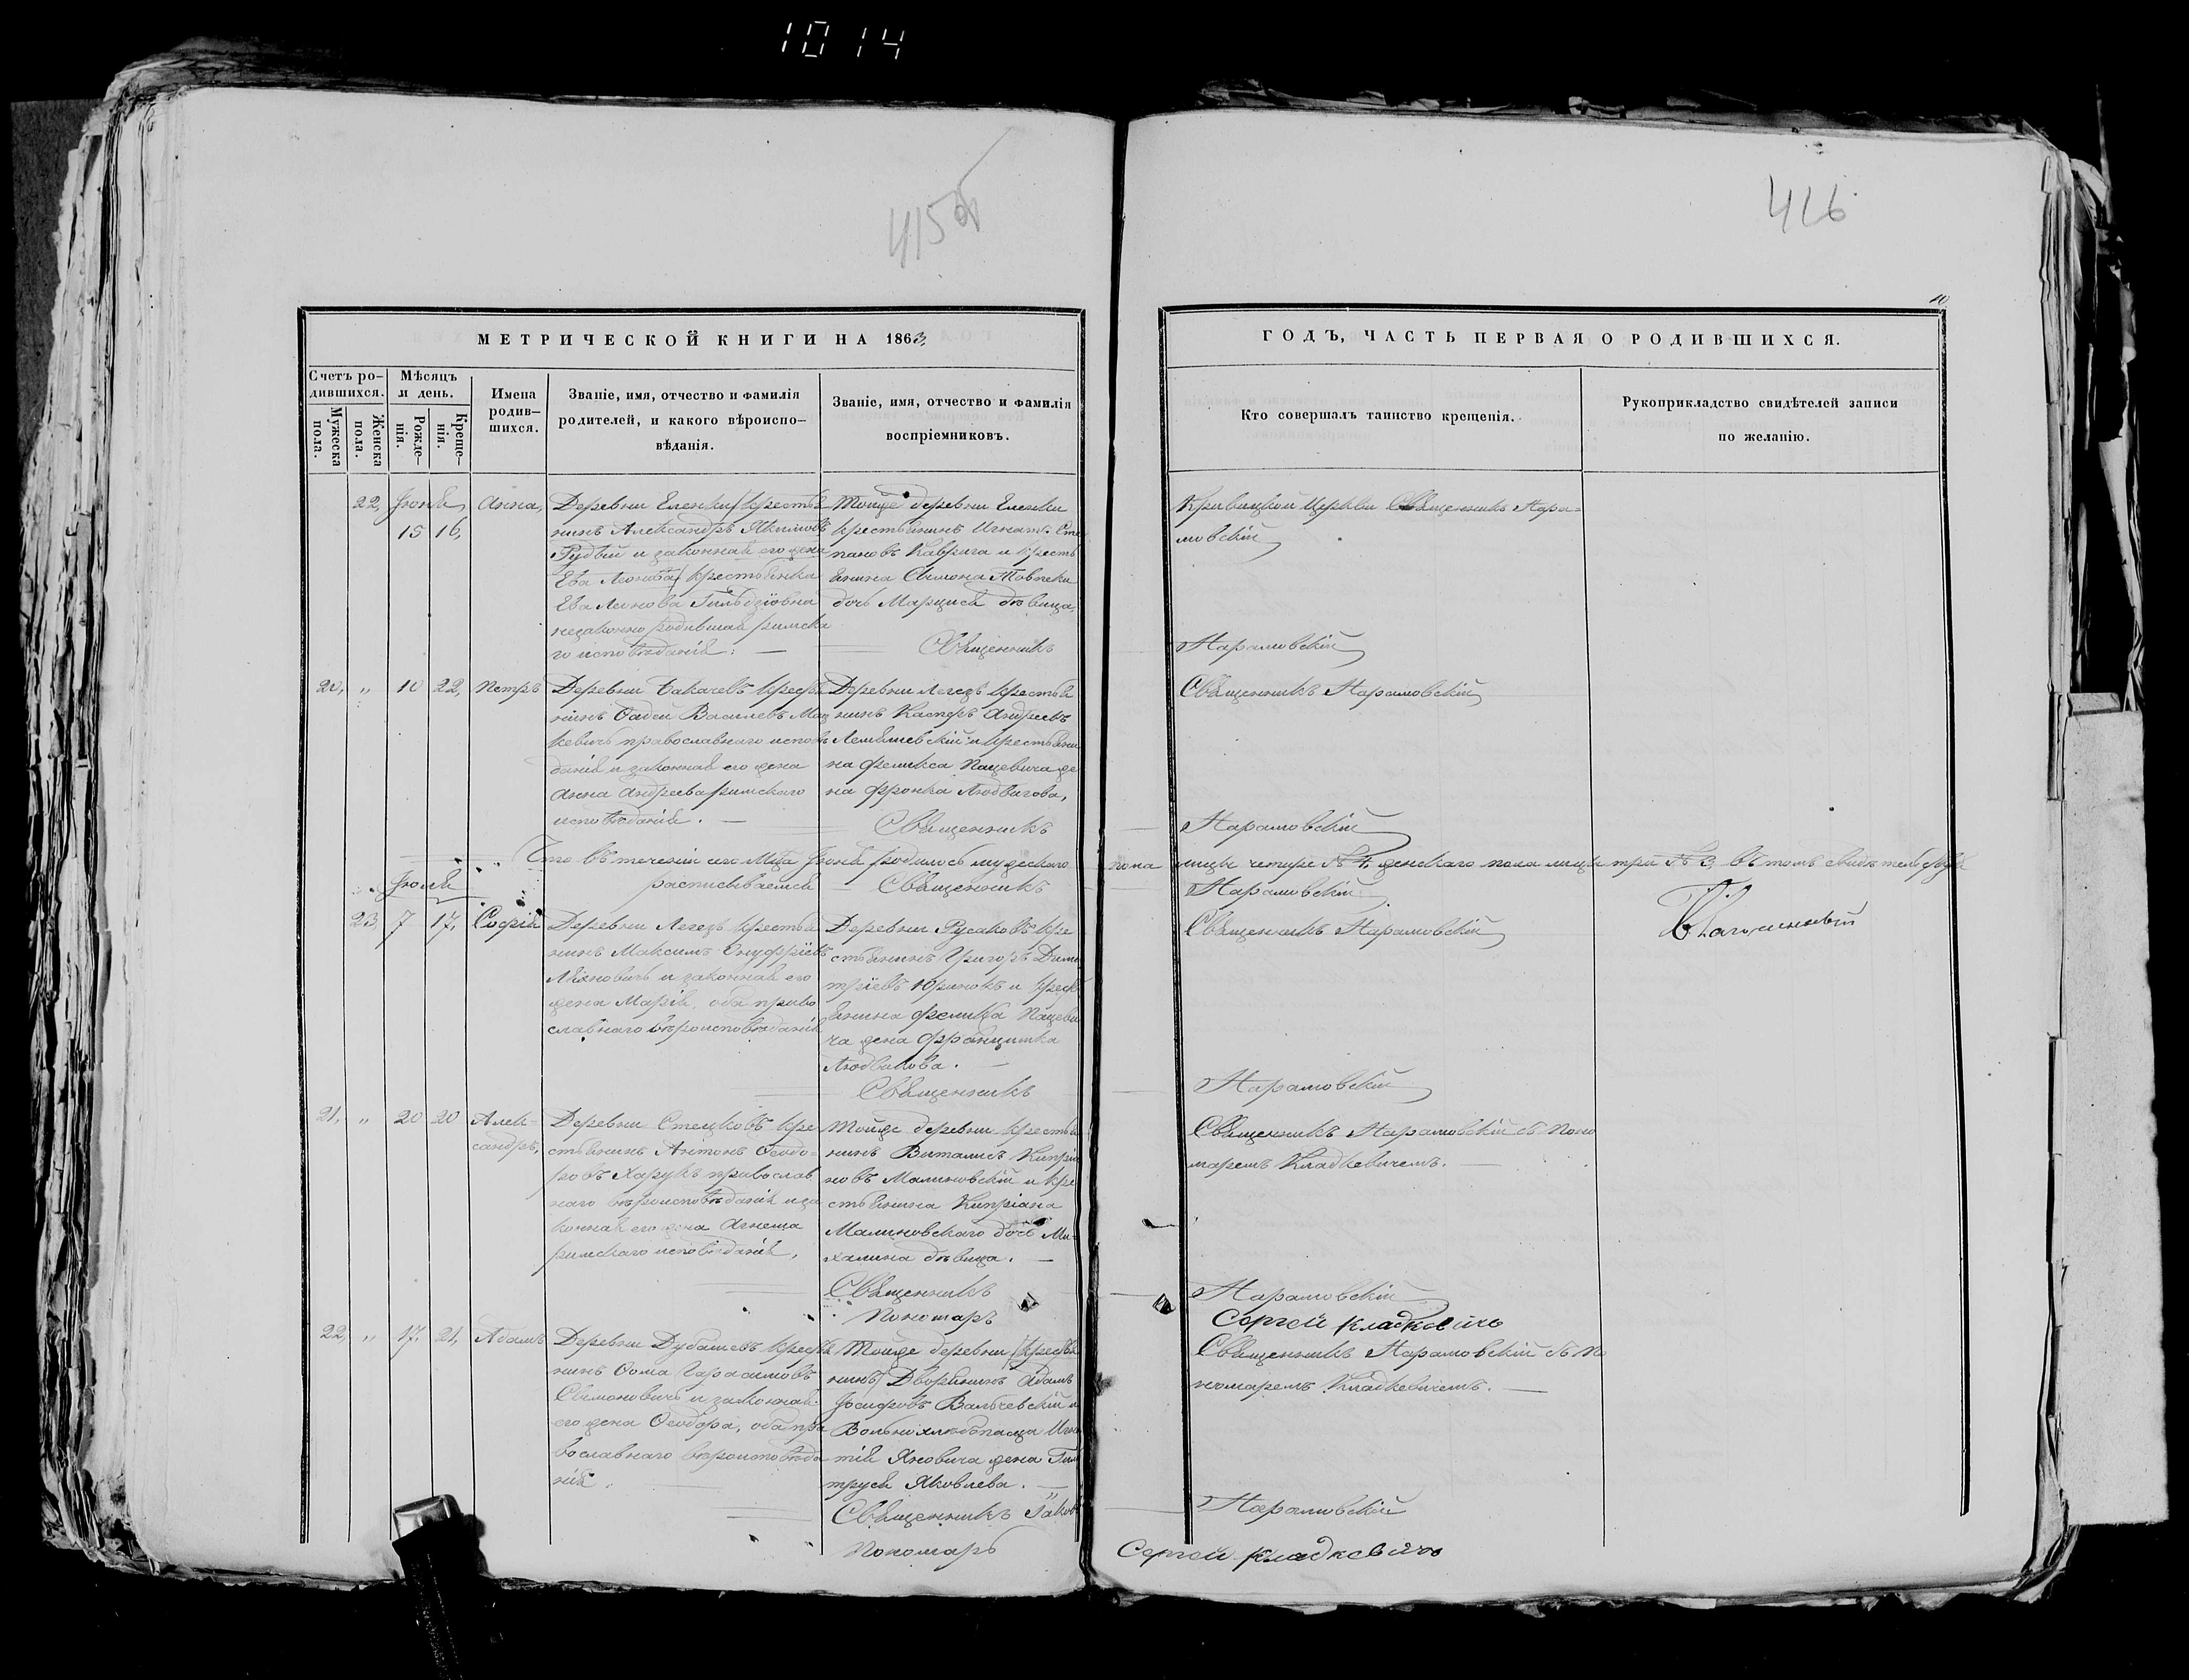 1014
415 об
416
10
МЕТРИЧЕСКОЙ КНИГИ НА 1863
ГОДЪ, ЧАСТЬ ПЕРВАЯ О РОДИВШИХСЯ.
Счетъ ро-
дившихся.
Мужеска пола.
Женска пола.
Мѣсяцъ
и день.
Рожде-
нія.
Креще-
нія.
Имена
родив-
шихся.
Званіе, имя, отчество и фамилія
родителей, и какого вѣроиспо-
вѣданія.
Званіе, имя, отчество и фамилія
воспріемниковъ.
Кто совершалъ таинство крещенія.
Рукоприкладство свидѣтелей записи
по желанію.
22, Іюня
15 16,
Анна,
Деревни Еленки (крестья
нинъ Александръ Якимовъ
Рудый и законная его жена
Ева Леонова) крестьянка
Ева Леонова
незаконно родившая римска
го исповѣданія: —
Тойже деревни Еленки
крестьянинъ Игнат. Сте
пановъ Каврига и крестья
янина Симона
дочь Марцися дѣвица,
Священникъ
Кривицкой Церкви Священникъ Нара-
мовскій
Нарамовскій
20, „ 10 22, Петръ
Деревни крестья
нинъ Фадей Василевъ Мац
кевичъ православнаго исповѣ
данія и законная его жена
Анна Андреева римскаго
исповѣданія. —
Деревни Легезъ крестья
нинъ Касперъ Андреевъ
и крестьяни
на Феликса Пацевича же
на Фронка Людвигова,
Священникъ
Священникъ Нарамовскій
Нарамовскій
Что въ теченіи сего Мца Іюня родилось мужескаго пола лицъ четыре № 4, женскаго пола лицъ три № 3, въ томъ
расписываемся — Священникъ
Нарамовскій
Іюля
23 7 17, Софія
Деревни Легезъ крестья
нинъ Максимъ Онуфріевъ
и законная его
жена Марія, оба право
славнаго вѣроисповѣданія
Деревни Русаковъ кре
стьянинъ Григоръ Дими
тріевъ и крест
янина Феликса Пацеви
ча жена Францишка
Людвикова. —
Священникъ
Священникъ Нарамовскій
Нарамовскій
21, „ 20 20 Алек-
сандръ,
Деревни Стецковъ кре
стьянинъ Антонъ Ѳеодо-
ровъ Харукъ православ
наго вѣроисповѣданія и за
конная его жена Агнеша
римскаго исповѣданія,
Тойже деревни крестья
нинъ Виталисъ Кипріа
новъ Малиновскій и кре
стьянина Кипріана
Малиновскаго дочь Ми-
халина дѣвица. —
Священникъ
Пономарь
Священникъ Нарамовскій съ Поно
маремъ Кладкевичемъ. —
Нарамовскій
Сергей Кладкевичъ
22, „ 17, 21, Адамъ
Деревни Дубашевъ крестья
нинъ Ѳома Гарасимовъ
Симоновичъ и законная
его жена Ѳеодора, оба пра
вославнаго вѣроисповѣда
нія.
Тойже деревни (крестья
нинъ) Дворянинъ Адамъ
Іосифовъ и
Вольнохлебопашца Игна
тія Яновича жена
Яковлева. —
Священникъ Іаковъ
Пономарь
Священникъ Нарамовскій съ По
номаремъ Кладкевичемъ. —
Нарамовскій
Сергей Кладкевичъ